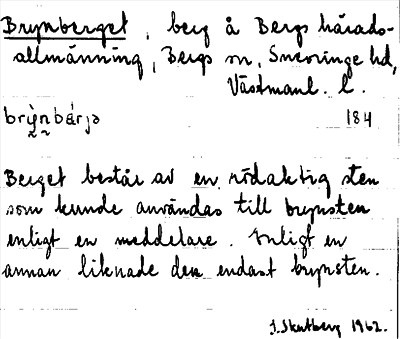 Brynberget, berg å Bergs härads-
allmänning, Bergs sn, Snevringe hd,
Västmanl. l.
brỳnbárjə 184
Berget består av en rödaktig sten
som kunde användas till brynsten
enligt en meddelare. Enligt en
annan liknade den endast brynsten.
J. Skutberg 1962.